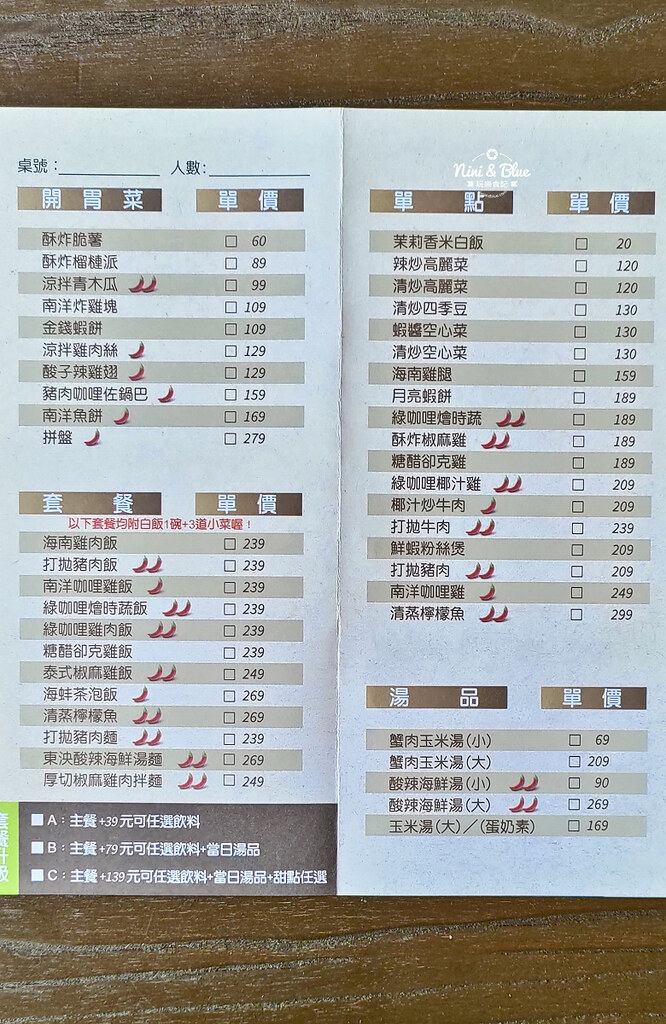 桌號：　　　　　人數：
開胃菜　單價
酥炸脆薯 □ 60
酥炸榴槤派 □ 89
涼拌青木瓜 □ 99
南洋炸雞塊 □ 109
金錢蝦餅 □ 109
涼拌雞肉絲 □ 129
酸子辣雞翅 □ 129
豬肉咖哩佐鍋巴 □ 159
南洋魚餅 □ 169
拼盤 □ 279
套餐　單價
以下套餐均附白飯1碗+3道小菜喔！
海南雞肉飯 □ 239
打拋豬肉飯 □ 239
南洋咖哩雞飯 □ 239
綠咖哩燴時蔬飯 □ 239
綠咖哩雞肉飯 □ 239
糖醋卻克雞飯 □ 239
泰式椒麻雞飯 □ 249
海蚌茶泡飯 □ 269
清蒸檸檬魚 □ 269
打拋豬肉麵 □ 239
東泱酸辣海鮮湯麵 □ 269
厚切椒麻雞肉拌麵 □ 249
套餐升級
A：主餐+39元可任選飲料
B：主餐+79元可任選飲料+當日湯品
C：主餐+139元可任選飲料+當日湯品+甜點任選
Nini & Blue
單點　單價
茉莉香米白飯 □ 20
辣炒高麗菜 □ 120
清炒高麗菜 □ 120
清炒四季豆 □ 130
蝦醬空心菜 □ 130
清炒空心菜 □ 130
海南雞腿 □ 159
月亮蝦餅 □ 189
綠咖哩燴時蔬 □ 189
酥炸椒麻雞 □ 189
糖醋卻克雞 □ 189
綠咖哩椰汁雞 □ 209
椰汁炒牛肉 □ 209
打拋牛肉 □ 239
鮮蝦粉絲煲 □ 209
打拋豬肉 □ 209
南洋咖哩雞 □ 249
清蒸檸檬魚 □ 299
湯品　單價
蟹肉玉米湯(小) □ 69
蟹肉玉米湯(大) □ 209
酸辣海鮮湯(小) □ 90
酸辣海鮮湯(大) □ 269
玉米湯(大)／(蛋奶素) □ 169